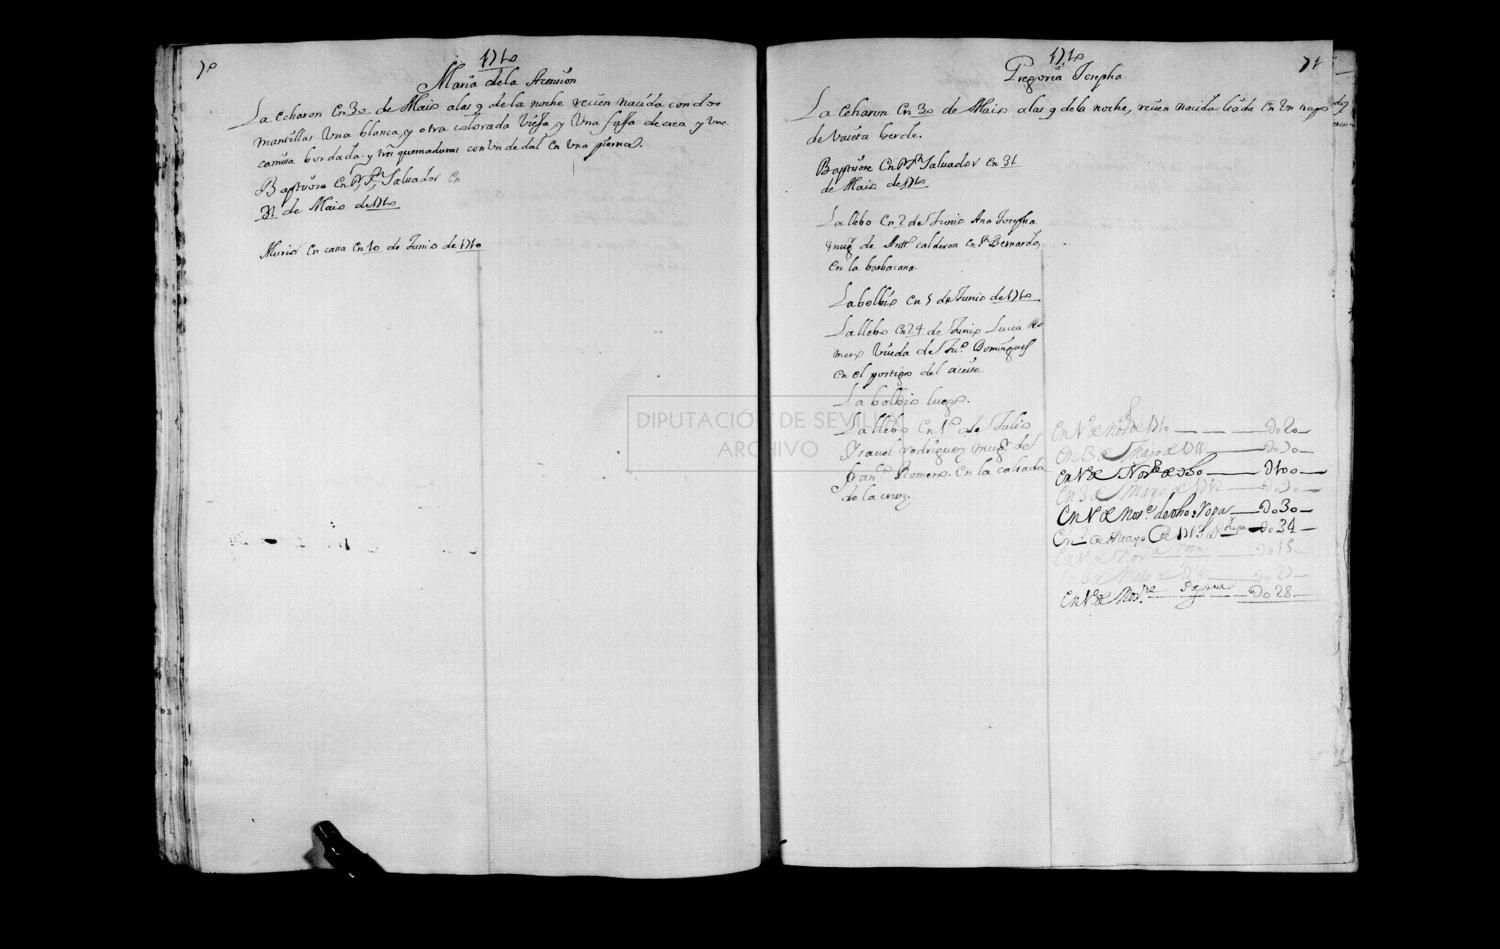 70
1710
Maria de la Acension
La echaron en 30 de Maio a las 9 de la noche recien nacida con dos
mantillas una blanca, y otra colorada viexa, y una faxa de crea y una
camisa bordada y tres quemaduras con un dedal en una pierna.
Baptisose en Sr. Salvador en
31 de Maio de 1710
Murio en cassa en 10 de Junio de 1710
71
1710
Gregoria Josepha
La echaron en 30 de Maio a las 9 de la noche, recien nacida liada en un trapo
de vaieta berde.
Baptisose en Sr. Salvador en 31
de Maio de 1710
La llebo en 2 de Junio Ana Josepha
mugr de Antt. calderon en Sn. Bernardo,
en la barbacana.
La bolbio en 5 de Junio de 1710
La llebo en 24 de Junio Lucia Ro
mero viuda de Juo. Dominguez
en el postigo del aceite.
La bolbio luego.
La llebo en 1o. de Julio
Ysavel rodriguez mugr. de
fran.co Romero. en la calsada
de la cruz.
En 1o. de Nore. de 1710 — Do 20
En 3 de Mayo de 1711 — Do
En 1o. de Nore. de dho — D
En 3 de Mayo de 1712 — Do
En 1o. de Nore. de dho: Ropa — Do 30
En de Mayo de 1713 Ropa — Do 34
En 1o. de Nore. Ropa — Do 15
En 3 de Mayo de — Do
En 1o. de Nore. — Do 28
DIPUTACIÓN DE SEVILLA
ARCHIVO